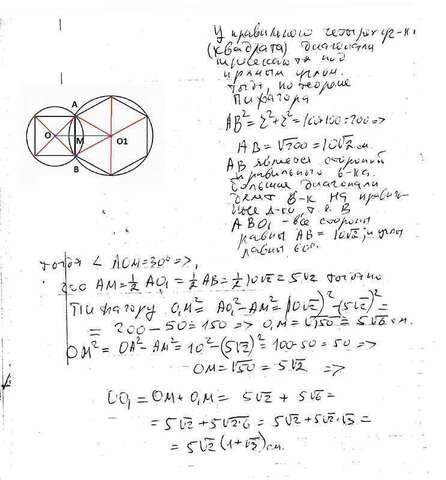 A
O
M
O1
B
У правильного четырехуг-ка
(квадрата) диагонали
пересекаются под
прямым углом.
Тогда, по теореме
Пифагора
AB²=r²+r²=100+100=200=>
AB=√200=10√2 см.
AB является стороной
правильного 6-ка.
Большие диагонали
делят 6-к на правиль-
ные
ABO₁ - все стороны
равны AB=10√2, и углы
равны 60°.
тогда ∠AO₁M=30°=>,
AM=½ AO₁=½ AB=½·10√2=5√2 тогда по
Пифагору O₁M²=AO₁²-AM²=(10√2)²-(5√2)²=
=200-50=150=>O₁M=√150=5√6 см.
OM²=OA²-AM²=10²-(5√2)²=100-50=50=>
OM=√50=5√2 =>
OO₁=OM+O₁M=5√2+5√6=
=5√2+5√2·6=5√2+5√2·√3=
=5√2(1+√3) см.